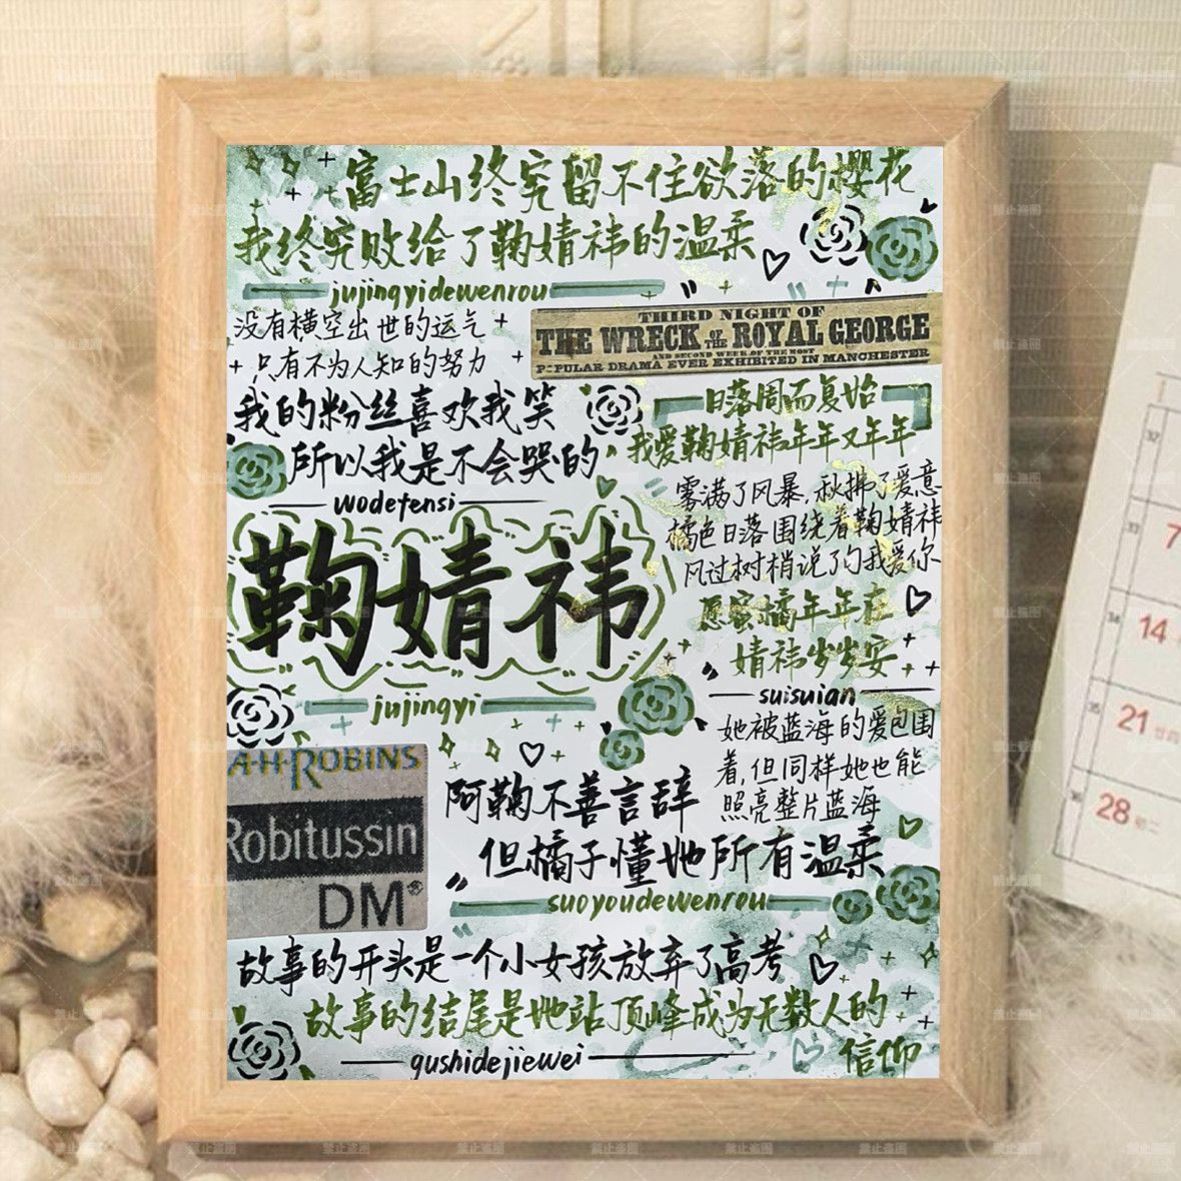 富士山终究留不住欲落的樱花
我终究败给了鞠婧祎的温柔
jujingyidewenrou
没有横空出世的运气
只有不为人知的努力
THIRD NIGHT OF
THE WRECK OF THE ROYAL GEORGE
AND SECOND WEEK OF THE MOST
POPULAR DRAMA EVER EXHIBITED IN MANCHESTER
我的粉丝喜欢我笑
所以我是不会哭的
wodefensi
日落周而复始
我爱鞠婧祎年年又年年
雾满了风暴,秋拂了爱意
橘色日落围绕着鞠婧祎
风过树梢说了句我爱你
愿蜜橘年年在
婧祎岁岁安
suisuian
鞠婧祎
jujingyi
她被蓝海的爱包围
着,但同样她也能
照亮整片蓝海
A·H·ROBINS
Robitussin
DM®
阿鞠不善言辞
但橘子懂她所有温柔
suoyoudewenrou
故事的开头是一个小女孩放弃了高考
故事的结尾是她站顶峰成为无数人的
信仰
gushidejiewei
7
14
21
28
33
34
35
36
禁止盗图